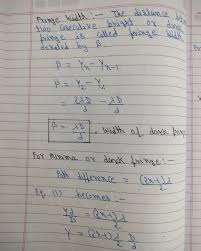 Fringe Width :- The distance betw
two consecutive bright or dark
fringe is called fringe width
denoted by β.
β = Yn - Yn-1
β = Y2 - Y1
= 2λD/d - λD/d
β = λD/d . width of dark fringe
For minima or dark fringe:-
Path difference = (2n-1) λ/2
Eq. (1) becomes:-
Yd/D = (2n-1) λ/2
Y = (2n-1) λ/2 D/d